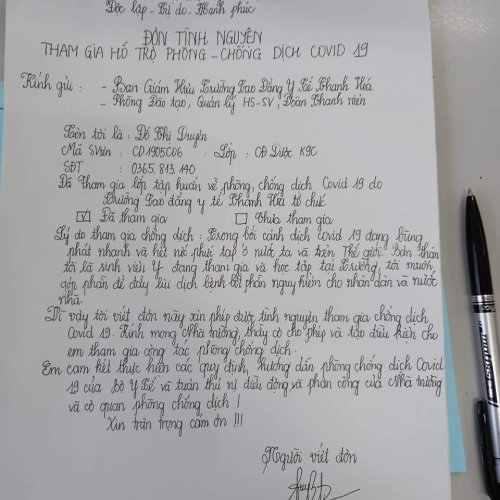 Độc lập - Tự do - Hạnh phúc
ĐƠN TÌNH NGUYỆN
THAM GIA HỖ TRỢ PHÒNG - CHỐNG DỊCH COVID 19
Kính gửi : - Ban Giám Hiệu Trường Cao Đẳng Y Tế Thanh Hóa
- Phòng Đào tạo, Quản lý HS-SV, Đoàn Thanh niên
Tên tôi là : Đỗ Thị Duyên
Mã SViên : CD1905C06 Lớp : CĐ Dược K9C
SĐT : 0365.813.140
Đã tham gia lớp tập huấn về phòng, chống dịch Covid 19 do
Trường Cao đẳng y tế Thanh Hóa tổ chức
Đã tham gia Chưa tham gia
Lý do tham gia chống dịch : Trong bối cảnh dịch covid 19 đang bùng
phát nhanh và hết sức phức tạp ở nước ta và trên Thế giới. Bản thân
tôi là sinh viên Y đang tham gia và học tập tại Trường, tôi muốn
góp phần để đẩy lùi dịch bệnh bớt phần nguy hiểm cho nhân dân và nước
nhà.
Vì vậy tôi viết đơn này xin phép được tình nguyện tham gia chống dịch
Covid 19. Kính mong Nhà trường, thầy cô cho phép và tạo điều kiện cho
em tham gia công tác phòng chống dịch.
Em cam kết thực hiện các quy định, hướng dẫn phòng chống dịch Covid
19 của bộ Y Tế và tuân thủ sự điều động và phân công của Nhà trường
và cơ quan phòng chống dịch !
Xin trân trọng cảm ơn !!!
Người viết đơn